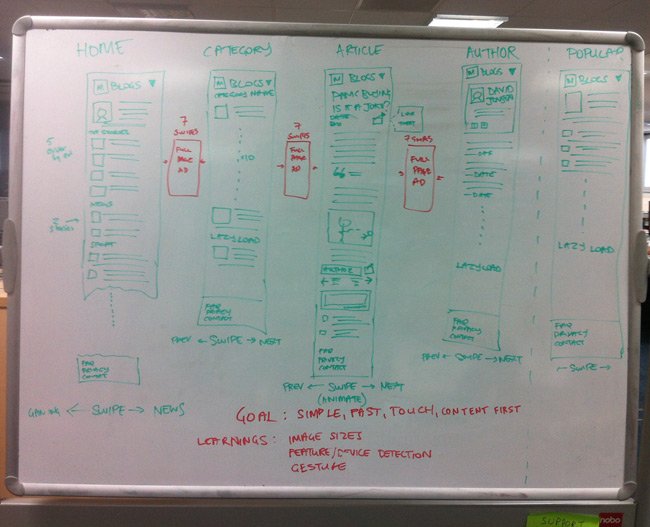 HOME
CATEGORY
ARTICLE
AUTHOR
POPULAR
M BLOGS
TOP STORIES
NEWS
SPORT
FAQ
PRIVACY
CONTACT
← SWIPE → NEWS
7
SWIPES
FULL
PAGE
AD
M BLOGS
CATEGORY NAME
x10
LAZY LOAD
FAQ
PRIVACY
CONTACT
PREV ← SWIPE → NEXT
7
SWIPES
FULL
PAGE
AD
M BLOGS
PANIC BUYING
IS IT A JOKE?
AUTHOR
FAQ
PRIVACY
CONTACT
PREV ← SWIPE → NEXT
(ANIMATE)
7 SWIPES
FULL
PAGE
AD
M BLOGS
DAVID
DATE
DATE
DATE
LAZY LOAD
FAQ
PRIVACY
CONTACT
PREV ← SWIPE → NEXT
M BLOGS
LAZY LOAD
FAQ
PRIVACY
CONTACT
← SWIPE →
GOAL: SIMPLE, FAST, TOUCH, CONTENT FIRST
LEARNINGS: IMAGE SIZES
FEATURE/DEVICE DETECTION
GESTURE
SUPPORT
nobo